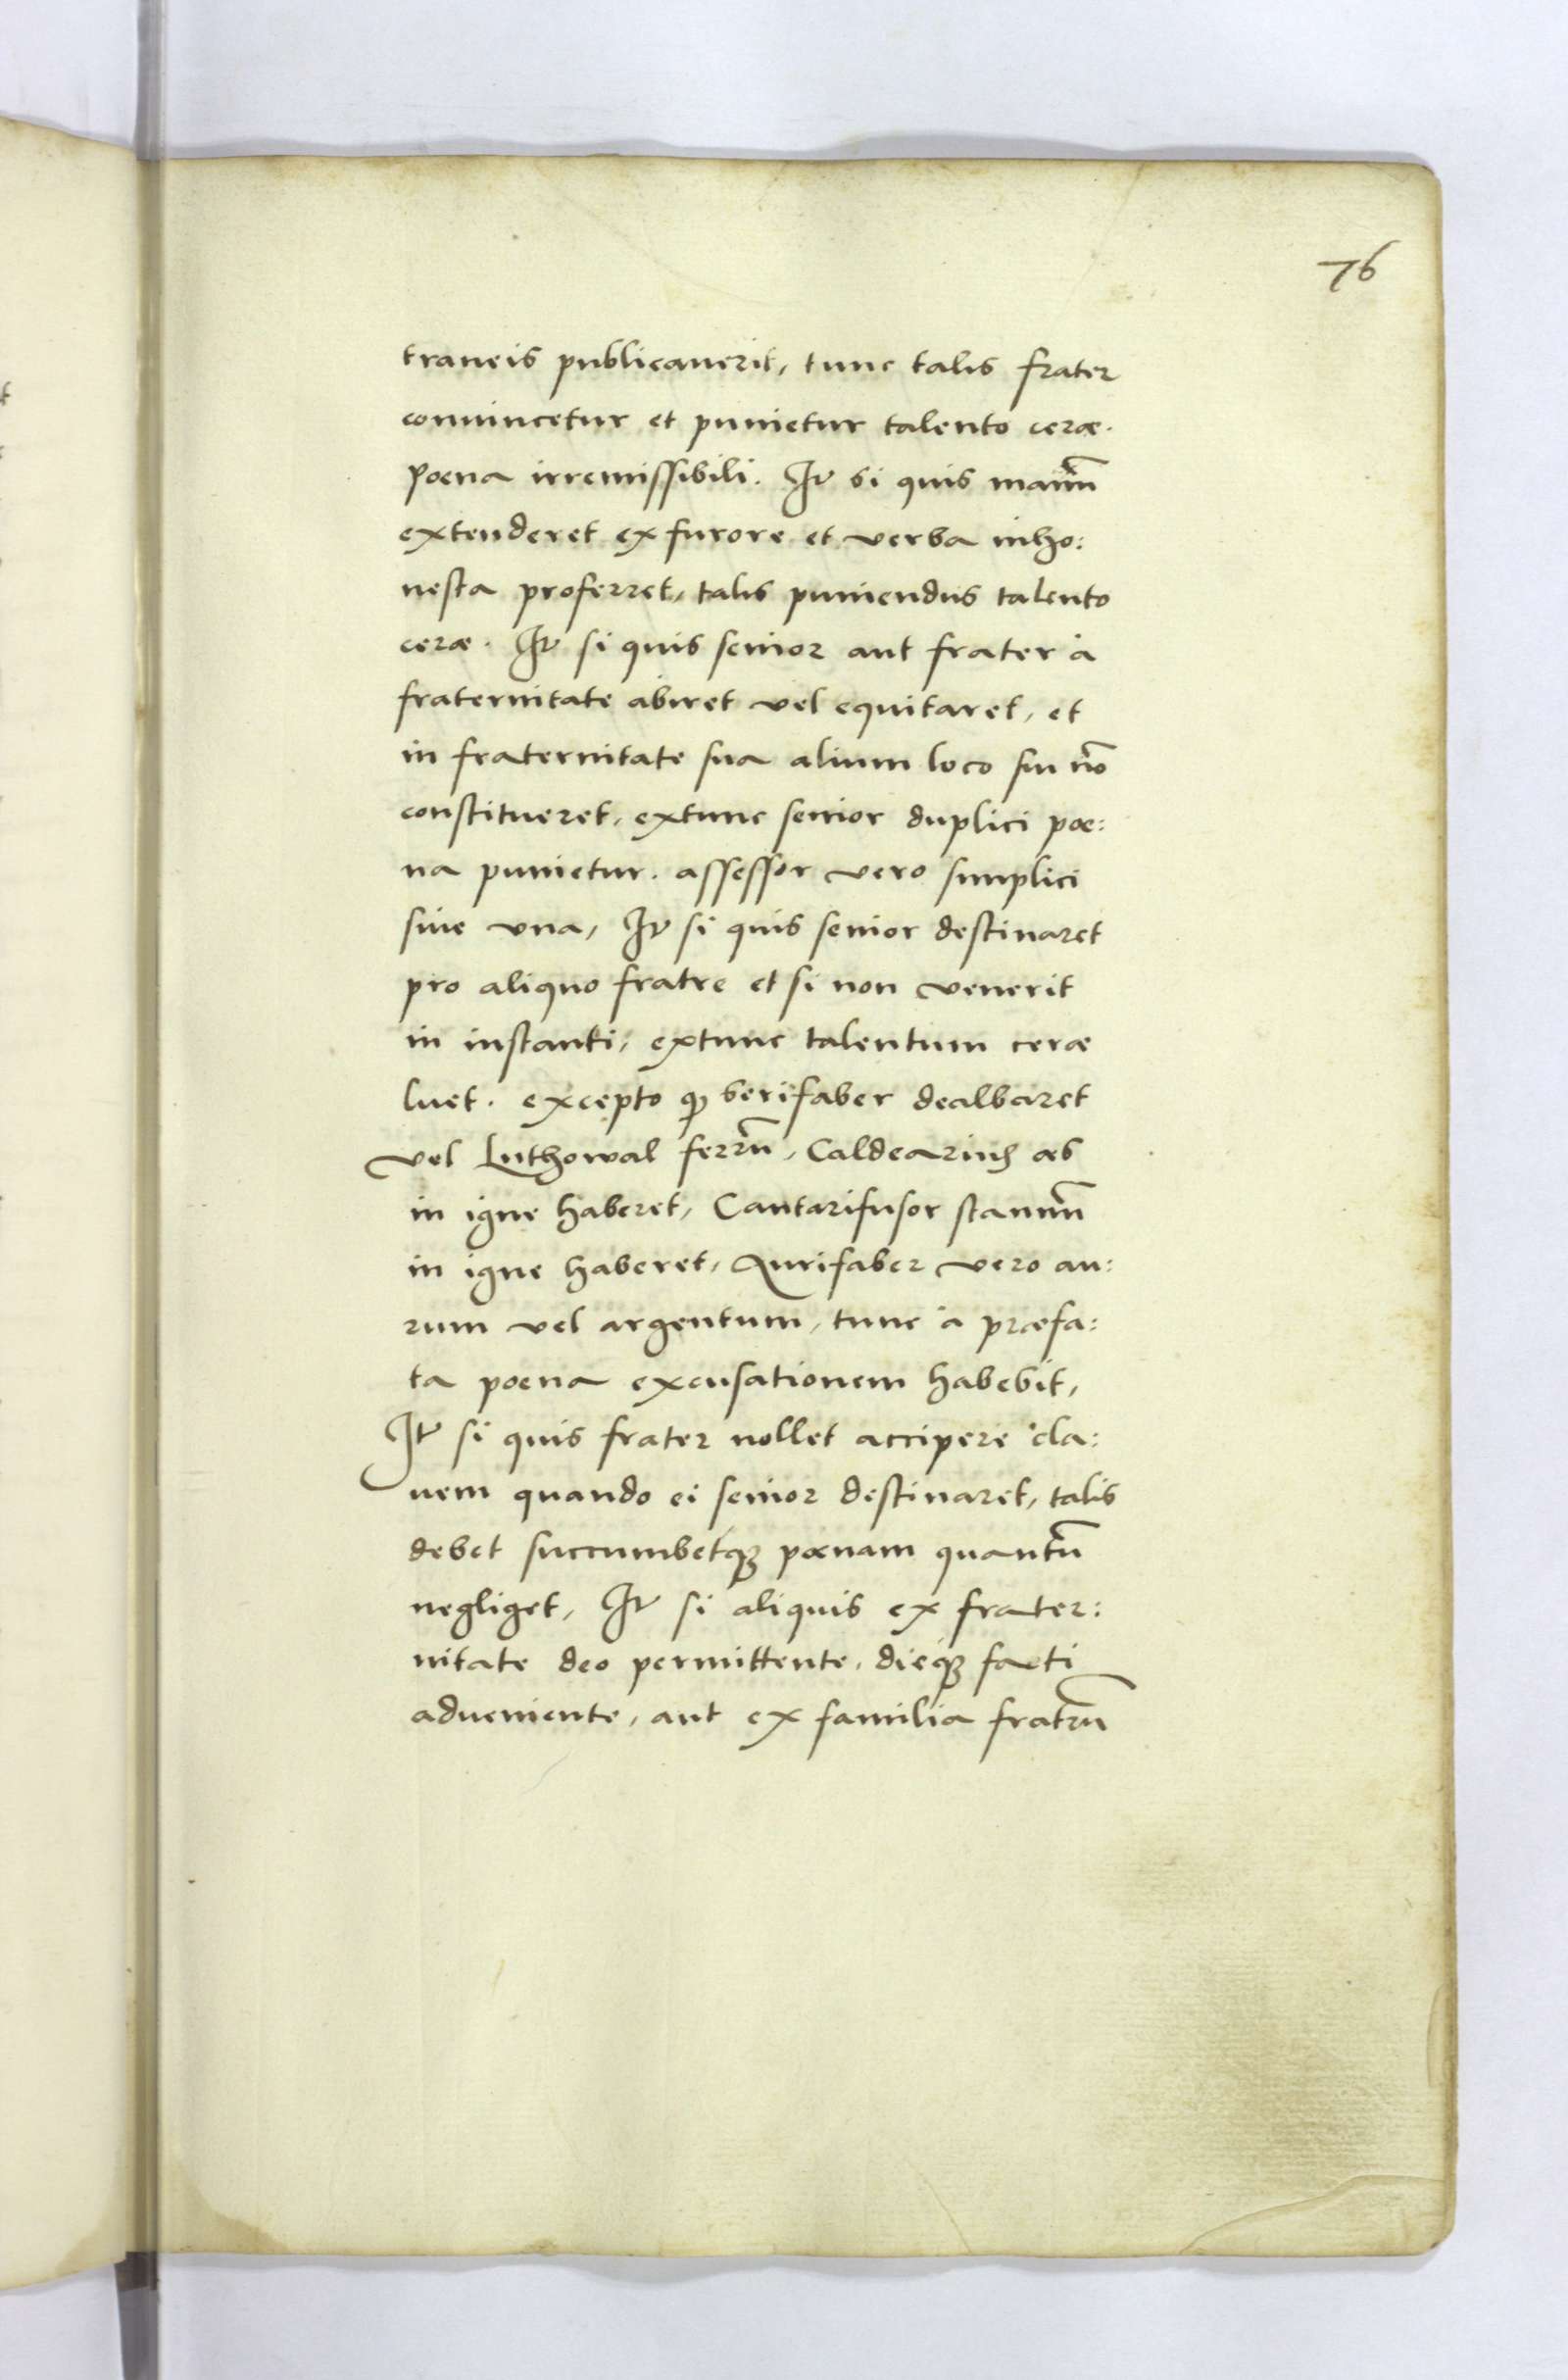 76
traneis publicauerit, tunc talis frater
conuincetur et punietur talento ceræ.
Poena irremissibili. Itē si quis manū
extenderet ex furore et verba inho:
nesta proferret, talis puniendus talento
ceræ. Itē si quis senior aut frater à
fraternitate abiret vel equitaret, et
in fraternitate sua alium loco sui nō
constitueret, extunc senior duplici poe:
na punietur. assessor vero simplici
siue vna, Itē si quis senior destinaret
pro aliquo fratre et si non venerit
in instanti, extunc talentum ceræ
luet. excepto ꝙ serifaber dealbaret
vel Luthowal ferrū, Caldearius æs
in igne haberet, Cantarifusor stannū
in igne haberet, Aurifaber vero au:
rum vel argentum, tunc à præfa:
ta poena excusationem habebit,
Itē si quis frater nollet accipere cla:
uem quando ei senior destinaret, talis
debet succumbetqꝫ poenam quantū
negliget, Itē si aliquis ex frater:
nitate deo permittente, dieqꝫ facti
adueniente, aut ex familia fratrū